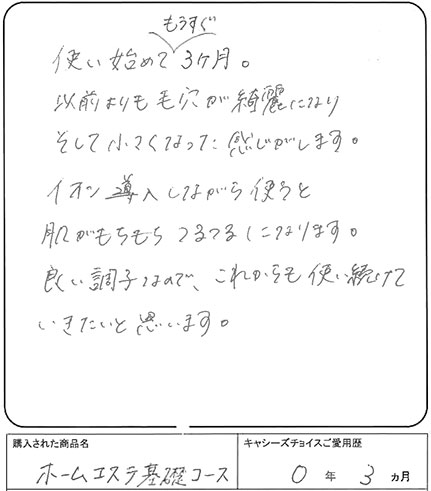 もうすぐ
使い始めて 3ヶ月。
以前よりも毛穴が綺麗になり
そして小さくなった感じがします。
イオン導入しながら使うと
肌がもちもちつるつるになります。
良い調子なので、これからも使い続けて
いきたいと思います。
購入された商品名
キャシーズチョイスご愛用歴
ホームエステ基礎コース
0 年 3 ヵ月